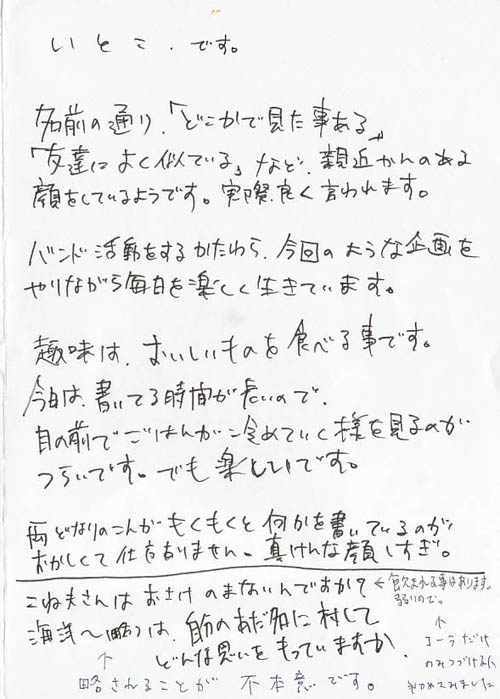 いとこ.です。
名前の通り、「どこかで見た事ある」
「友達によく似ている」など、親近かんのある
顔をしているようです。実際、良く言われます。
バンド活動をするかたわら、今回のような企画を
やりながら毎日を楽しく生きています。
趣味は、おいしいものを食べる事です。
今日は、書いてる時間が長いので、
目の前でごはんが冷めていく様を見るのが
つらいです。でも楽しいです。
両どなりのこんがもくもくと何かを書いているのが
おかしくて仕方ありません。真けんな顔しすぎ。
こね夫さんはおさけのまないんですか? ← 飲まれる事はあります。
弱いので。
海洋〜(略)は、自分のあだ名に対して
どんな思いをもっていますか。
↑
略されることが 不本意です。
↑
コーラだけ
のみつづける人